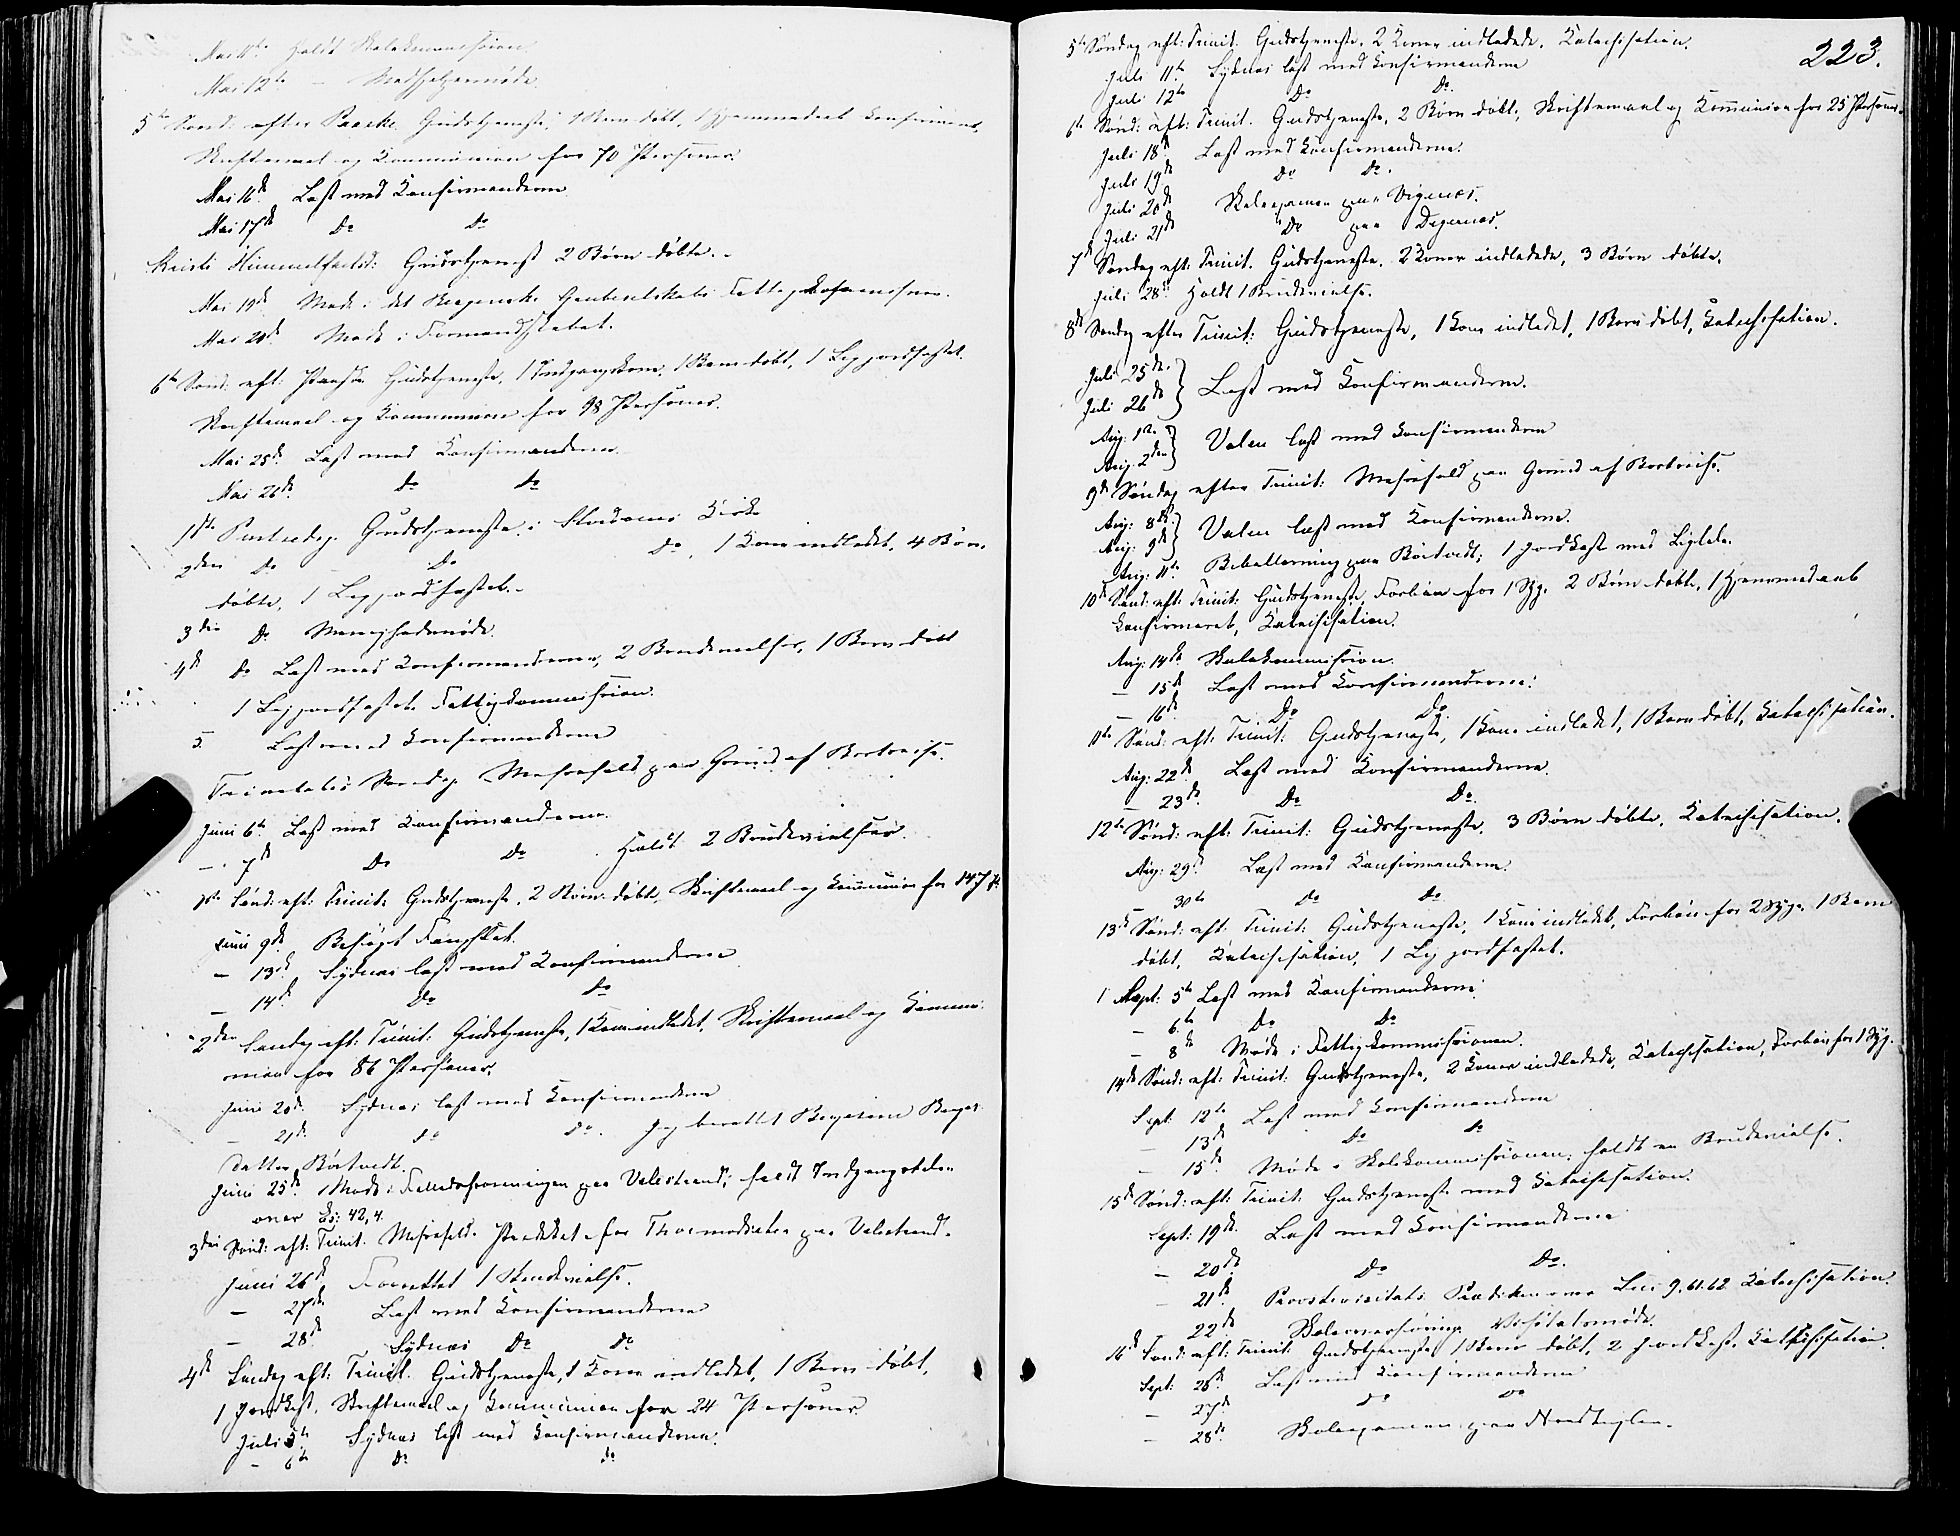 Mai 11te holdt Skolekommission
Mai 12te —
5te Sønd: efter Paaske Gudstjeneste, 1 Barn døbt, 1 hjemmedøbt konfirmeret,
Skriftemaal og Kommunion for 70 Personer.
Mai 16de Læst med Konfirmanderne
Mai 17de Do Do
Kristi Himmelfartsd: Gudstjeneste 2 Børn døbte.
Mai 19de Møde i det
Mai 20de Møde i Formandskabet.
6te Sønd: eft: Paaske Gudstjeneste, 1 Indgangskone, 1 Barn døbt, 1 Lig jordfæstet.
Skriftemaal og Kommunion for 98 Personer.
Mai 25de Læst med Konfirmanderne.
Mai 26de Do Do
1ste Pintsedag Gudstjeneste i Kirke
2den Do Do Do, 1 Kone indledet, 4 Børn
døbte, 1 Lig jordfæstet.
3die Do Menighedsmøde.
4de Do Læst med Konfirmanderne, 2 Brudevielser, 1 Barn døbt
1 Lig jordfæstet. Fattigkommission.
5. Læst med Konfirmanderne
Trinitatis Søndag Messefald paa Grund af Bortreise.
Juni 6te Læst med Konfirmanderne.
— 7de Do Do Holdt 2 Brudevielser.
1ste Sønd: eft: Trinit: Gudstjeneste, 2 Børn døbte, Skriftemaal og Kommunion for 147 P.
Juni 9de Besøgt
— 13de Sydnæs læst med Konfirmanderne
— 14de Do Do
2den Søndag eft: Trinit: Gudstjeneste, 1 Kone indledet, Skriftemaal og Kommu-
nion for 86 Personer.
Juni 20de Sydnæs læst med Konfirmanderne
— 21de Do Do. Jeg
Datter Børtvedt.
Juni 25de 1 Møde i paa Valestrand; holdt Indgangstale
over Es: 42,4.
3die Sønd: eft: Trinit: Messefald. Prædiket for paa Valestrand.
Juni 26de Forrettet 1 Brudevielse.
— 27de Læst med Konfirmanderne
— 28de Sydnæs Do Do
4de Søndag eft: Trinit: Gudstjeneste, 1 Kone indledet, 1 Barn døbt,
1 Jordkast. Skriftemaal og Kommunion for 24 Personer
Juli 5te Sydnæs læst med Konfirmanderne.
— 6te Do Do
223.
5te Søndag eft: Trinit. Gudstjeneste. 2 Koner indledede. Katechisation.
Juli 11te Sydnæs læst med Konfirmanderne
Juli 12te Do Do.
6te Sønd: eft: Trinit. Gudstjeneste, 2 Børn døbt, Skriftemaal og Kommunion for 25 Personer.
Juli 18de Læst med Konfirmanderne.
Juli 19de Do Do.
Juli 20de Skoleexamen paa Vigenæs.
Juli 21de Do paa Digernæs.
7de Søndag eft: Trinit. Gudstjeneste. 2 Koner indledede, 3 Børn døbte.
Juli 23de Holdt 1 Brudevielse.
8de Søndag efter Trinit: Gudstjeneste, 1 Kone indledet, 1 Barn døbt, Katechisation.
Juli 25de
Juli 26de } Læst med Konfirmanderne.
Aug: 1ste
Aug: 2den } Valen læst med Konfirmanderne
9de Søndag efter Trinit: Messefald paa Grund af Bortreise.
Aug: 8de
Aug: 9de } Valen læst med Konfirmanderne.
Aug: 11te paa Børtvedt; 1 Jordkast med Ligtale.
10de Sønd: eft: Trinit: Gudstjeneste, Forbøn for 1 Syg. 2 Børn døbte, 1 hjemmedøbt
konfirmeret, Katechisation.
Aug: 14de Skolekommission.
— 15de Læst med Konfirmanderne.
— 16de Do Do
11te Sønd: eft: Trinit: Gudstjeneste, 1 Kone indledet, 1 Barn døbt, Katechisation.
Aug: 22de Læst med Konfirmanderne.
— 23de Do Do
12te Sønd: eft: Trinit: Gudstjeneste, 3 Børn døbte, Katechisation.
Aug: 29de Læst med Konfirmanderne.
— 30te Do Do
13de Sønd: eft: Trinit: Gudstjeneste, 1 Kone indledet, Forbøn for 2 Syge. 1 Barn
døbt, Katechisation, 1 Lig jordfæstet.
Sept: 5te Læst med Konfirmanderne
— 6te Do Do
— 8de Møde i Fattigkommissionen.
14de Sønd: eft: Trinit: Gudstjeneste, 2 Koner indledede, Katechisation, Forbøn for 1 Syg.
Sept: 12te Læst med Konfirmanderne
— 13de Do Do
— 15de Møde i Skolekommissionen; holdt en Brudevielse.
15de Sønd: eft: Trinit: Gudstjeneste med Katechisation.
Sept: 19de Læst med Konfirmanderne
— 20de Do Do.
— 21de Provstevisitats Prædiken over Luc 9, 61.62 Katechisation.
— 22de Visitatsmøde.
16de Sønd: eft: Trinit Gudstjeneste, 1 Barn døbt, 2 Jordkast, Katechisation.
Sept: 26de Læst med Konfirmanderne
— 27de Do Do
— 28de Skoleexamen paa